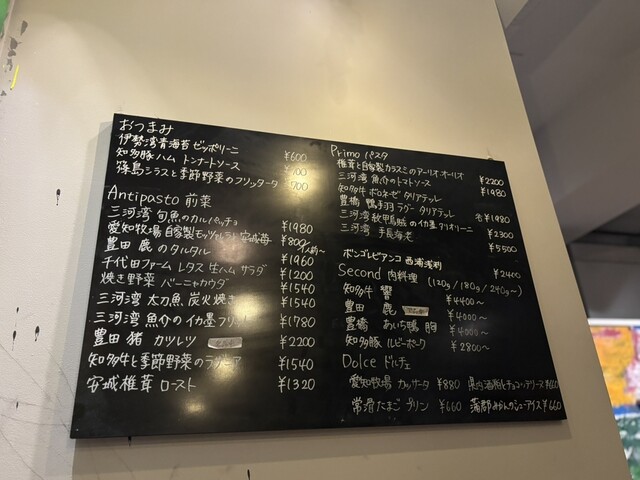 おつまみ
伊勢湾青海苔ゼッポリーニ ¥600
知多豚ハム トンナートソース ¥700
篠島シラスと季節野菜のフリッタータ 700
Antipasto 前菜
三河湾 旬魚のカルパッチョ ¥1980
愛知牧場 自家製モッツァレラと安城苺 ¥800/1人前〜
豊田 鹿のタルタル ¥1960
千代田ファーム レタス 生ハム サラダ ¥1200
焼き野菜 バーニャカウダ ¥1540
三河湾 太刀魚 炭火焼き ¥1540
三河湾 魚介のイカ墨フリット ¥1780
豊田 猪 カツレツ ¥2200
知多牛と季節野菜のラザニア ¥1540
安城椎茸 ロースト ¥1320
Primo パスタ
椎茸と自家製カラスミのアーリオ・オーリオ ¥2200
三河湾 魚介のトマトソース ¥1980
知多牛 ボロネーゼ タリアテッレ
豊橋 鴨手羽 ラグー タリアテッレ 各¥1980
三河湾 イカ墨タリオリーニ ¥2300
三河湾 手長海老 ¥5500
ボンゴレビアンコ 西浦浅利 ¥2400
Second 肉料理 (120g/180g/240g〜)
知多牛 響 ¥4400〜
豊田 鹿 ¥4000〜
豊橋 あいち鴨 胸 ¥4000〜
知多豚 ルビーポーク ¥2800〜
Dolce ドルチェ
愛知牧場 カッサータ ¥880 県内酒粕とチョコのテリーヌ
常滑たまご プリン ¥660 蒲郡みかんのシューアイス ¥660